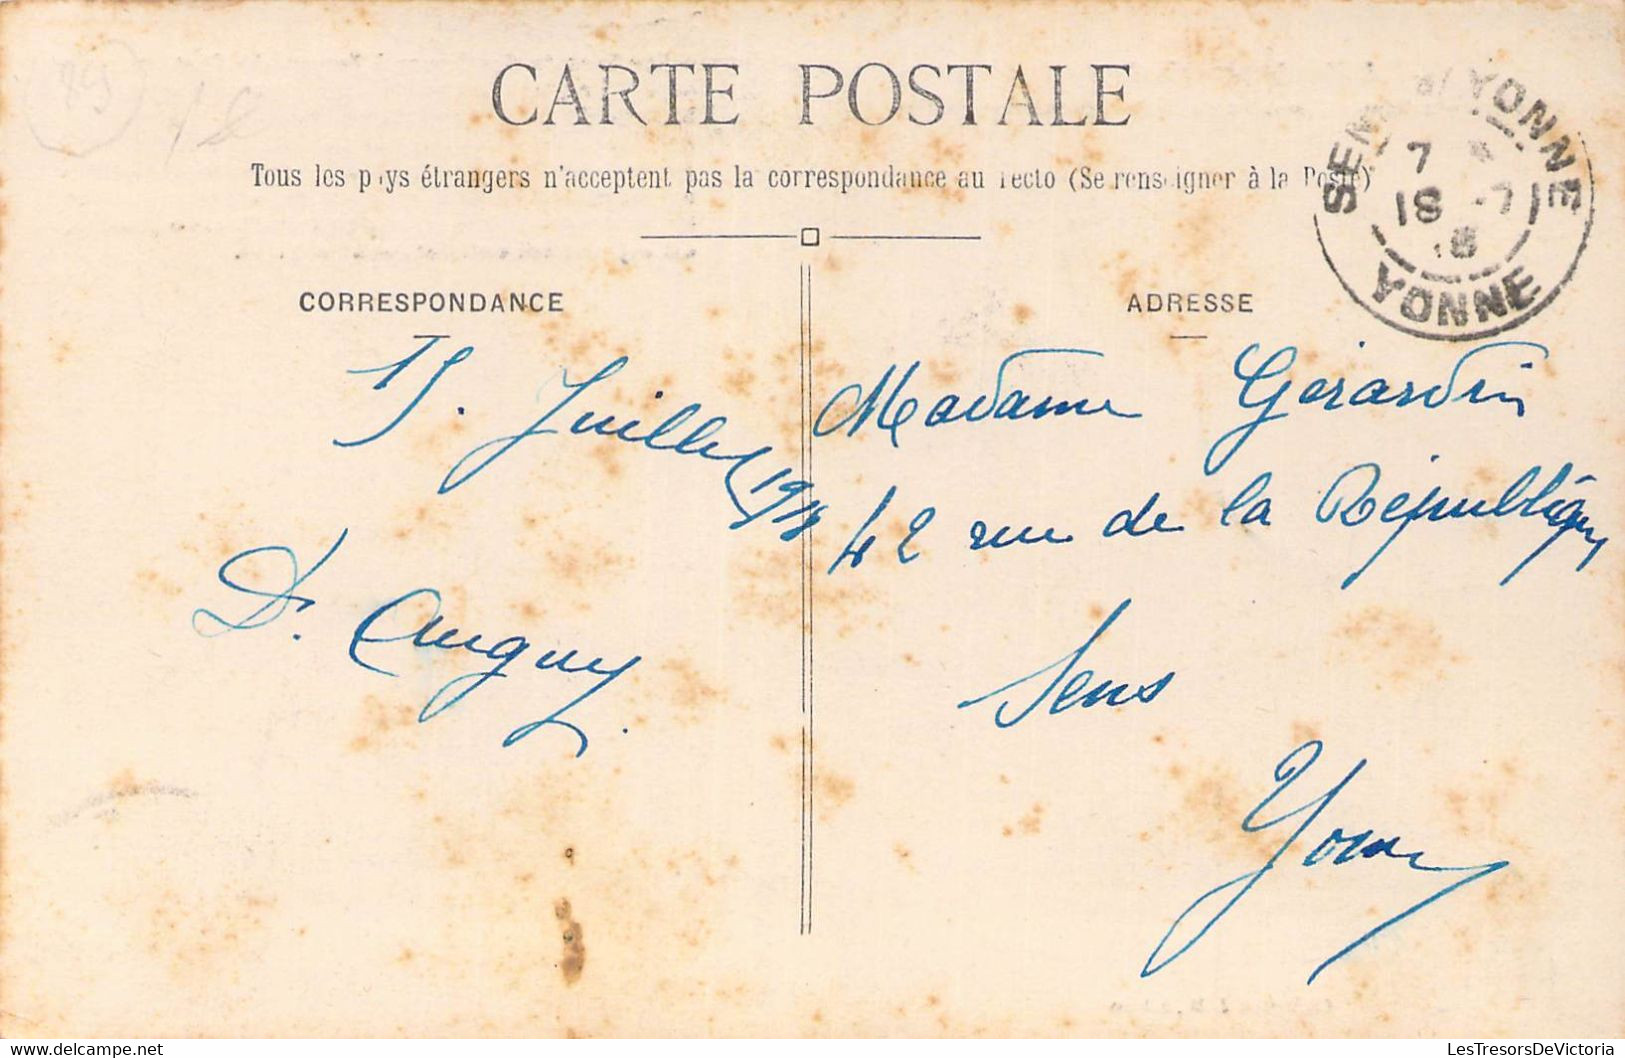 CARTE POSTALE
Tous les pays étrangers n'acceptent pas la correspondance au recto (Se renseigner à la Poste)
SENS S/ YONNE
7
18 -7
18
YONNE
CORRESPONDANCE
ADRESSE
15. Juillet 1918
D. Auguy.
Madame Gérardin
42 rue de la République
Sens
Yonne
LesTresorsDeVictoria